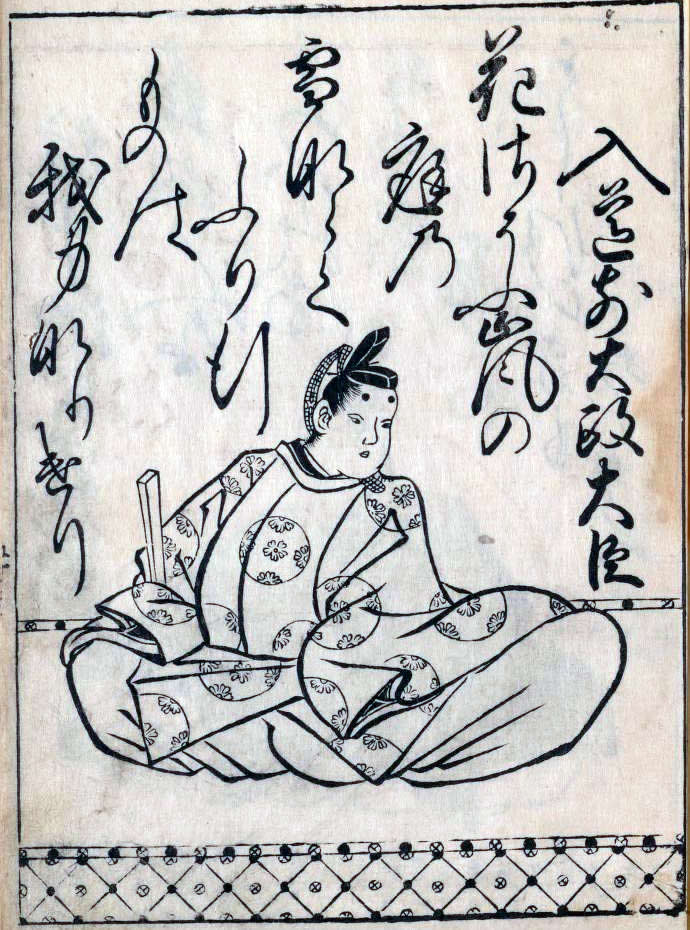 入道前大政大臣
花さそふ嵐の
庭乃
雪ならて
ふり行
ものは
我身なりけり